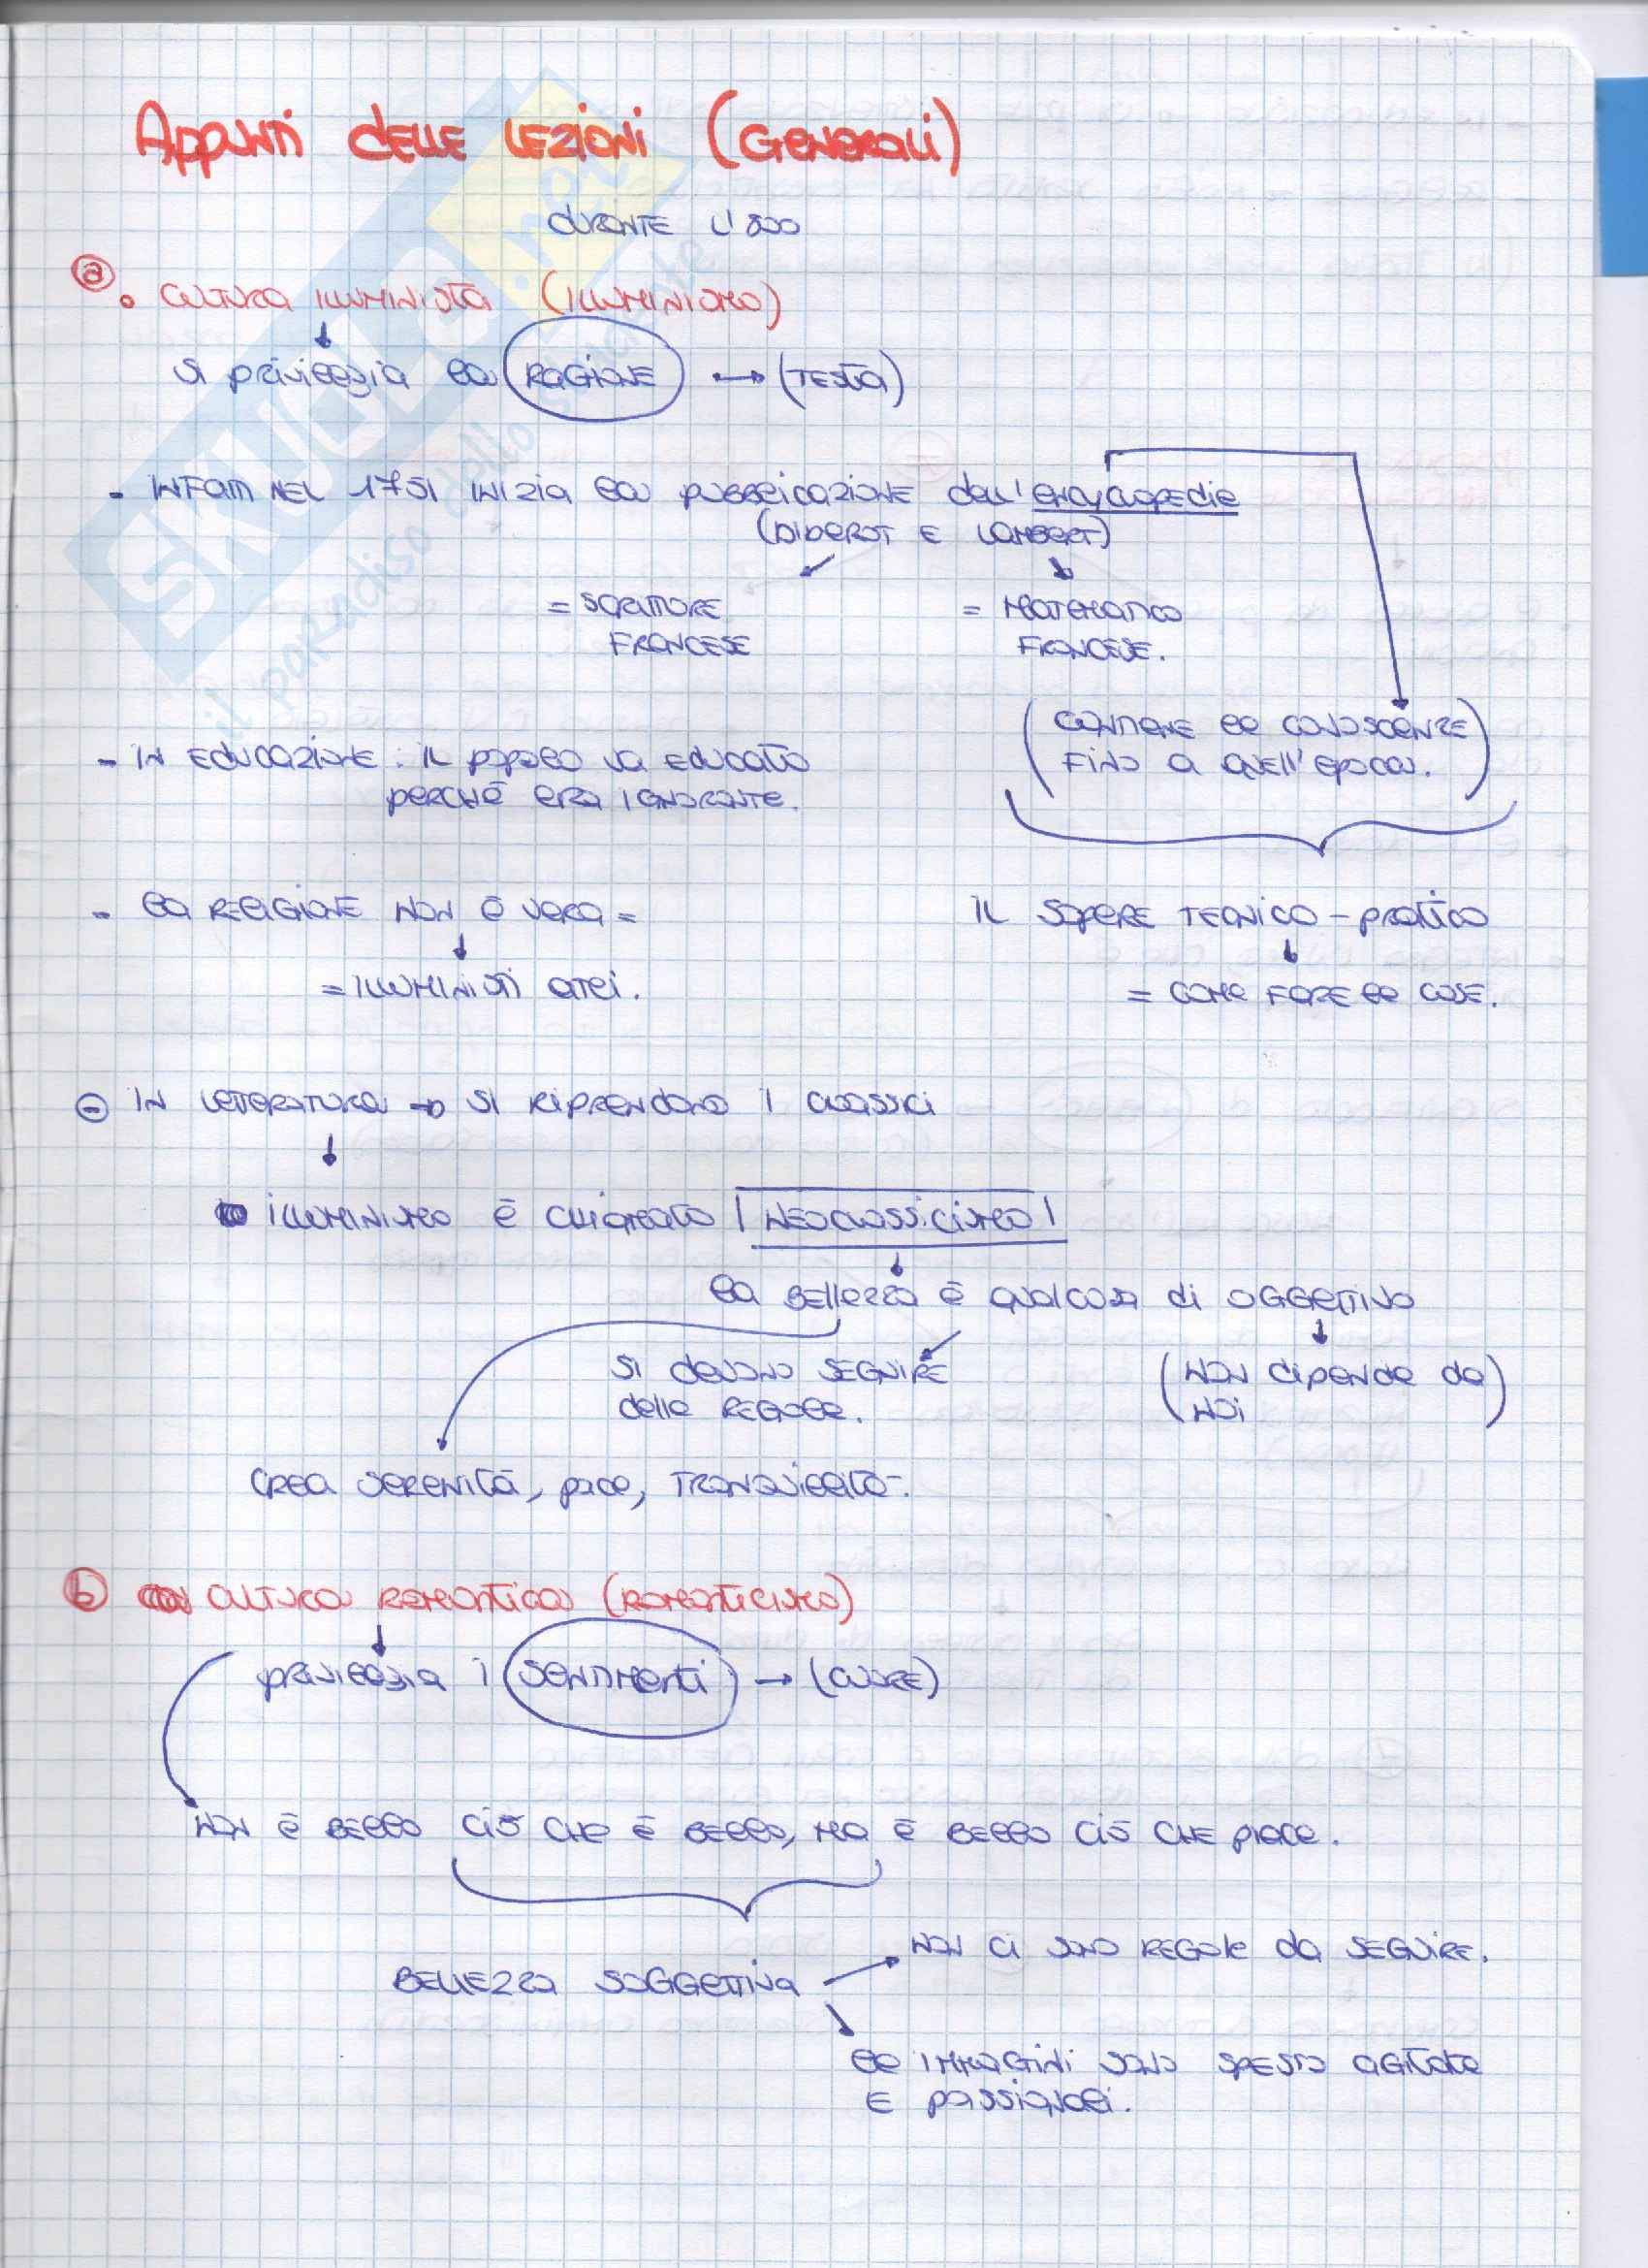 Appunti delle lezioni (generali)
durante l'800
a
• cultura illuminista (illuminismo)
si privilegia la ragione → (testa)
- infatti nel 1751 inizia la pubblicazione dell'encyclopedie
(Diderot e Lambert)
= scrittore francese
= matematico francese.
(contiene le conoscenze
fino a quell'epoca.)
- in educazione: il popolo va educato
perché era ignorante.
- la religione non è vera =
= illuministi atei.
il sapere tecnico-pratico
= come fare le cose.
- in letteratura → si riprendono i classici
illuminismo è chiamato | neoclassicismo |
la bellezza è qualcosa di oggettivo
si devono seguire
delle regole.
(non dipende da
noi)
crea serenità, pace, tranquillità.
b cultura romantica (romanticismo)
privilegia i sentimenti → (cuore)
non è bello ciò che è bello, ma è bello ciò che piace.
non ci sono regole da seguire.
bellezza soggettiva
le immagini sono spesso agitate
e passionali.
SKUOLA.net
il paradiso dello studente